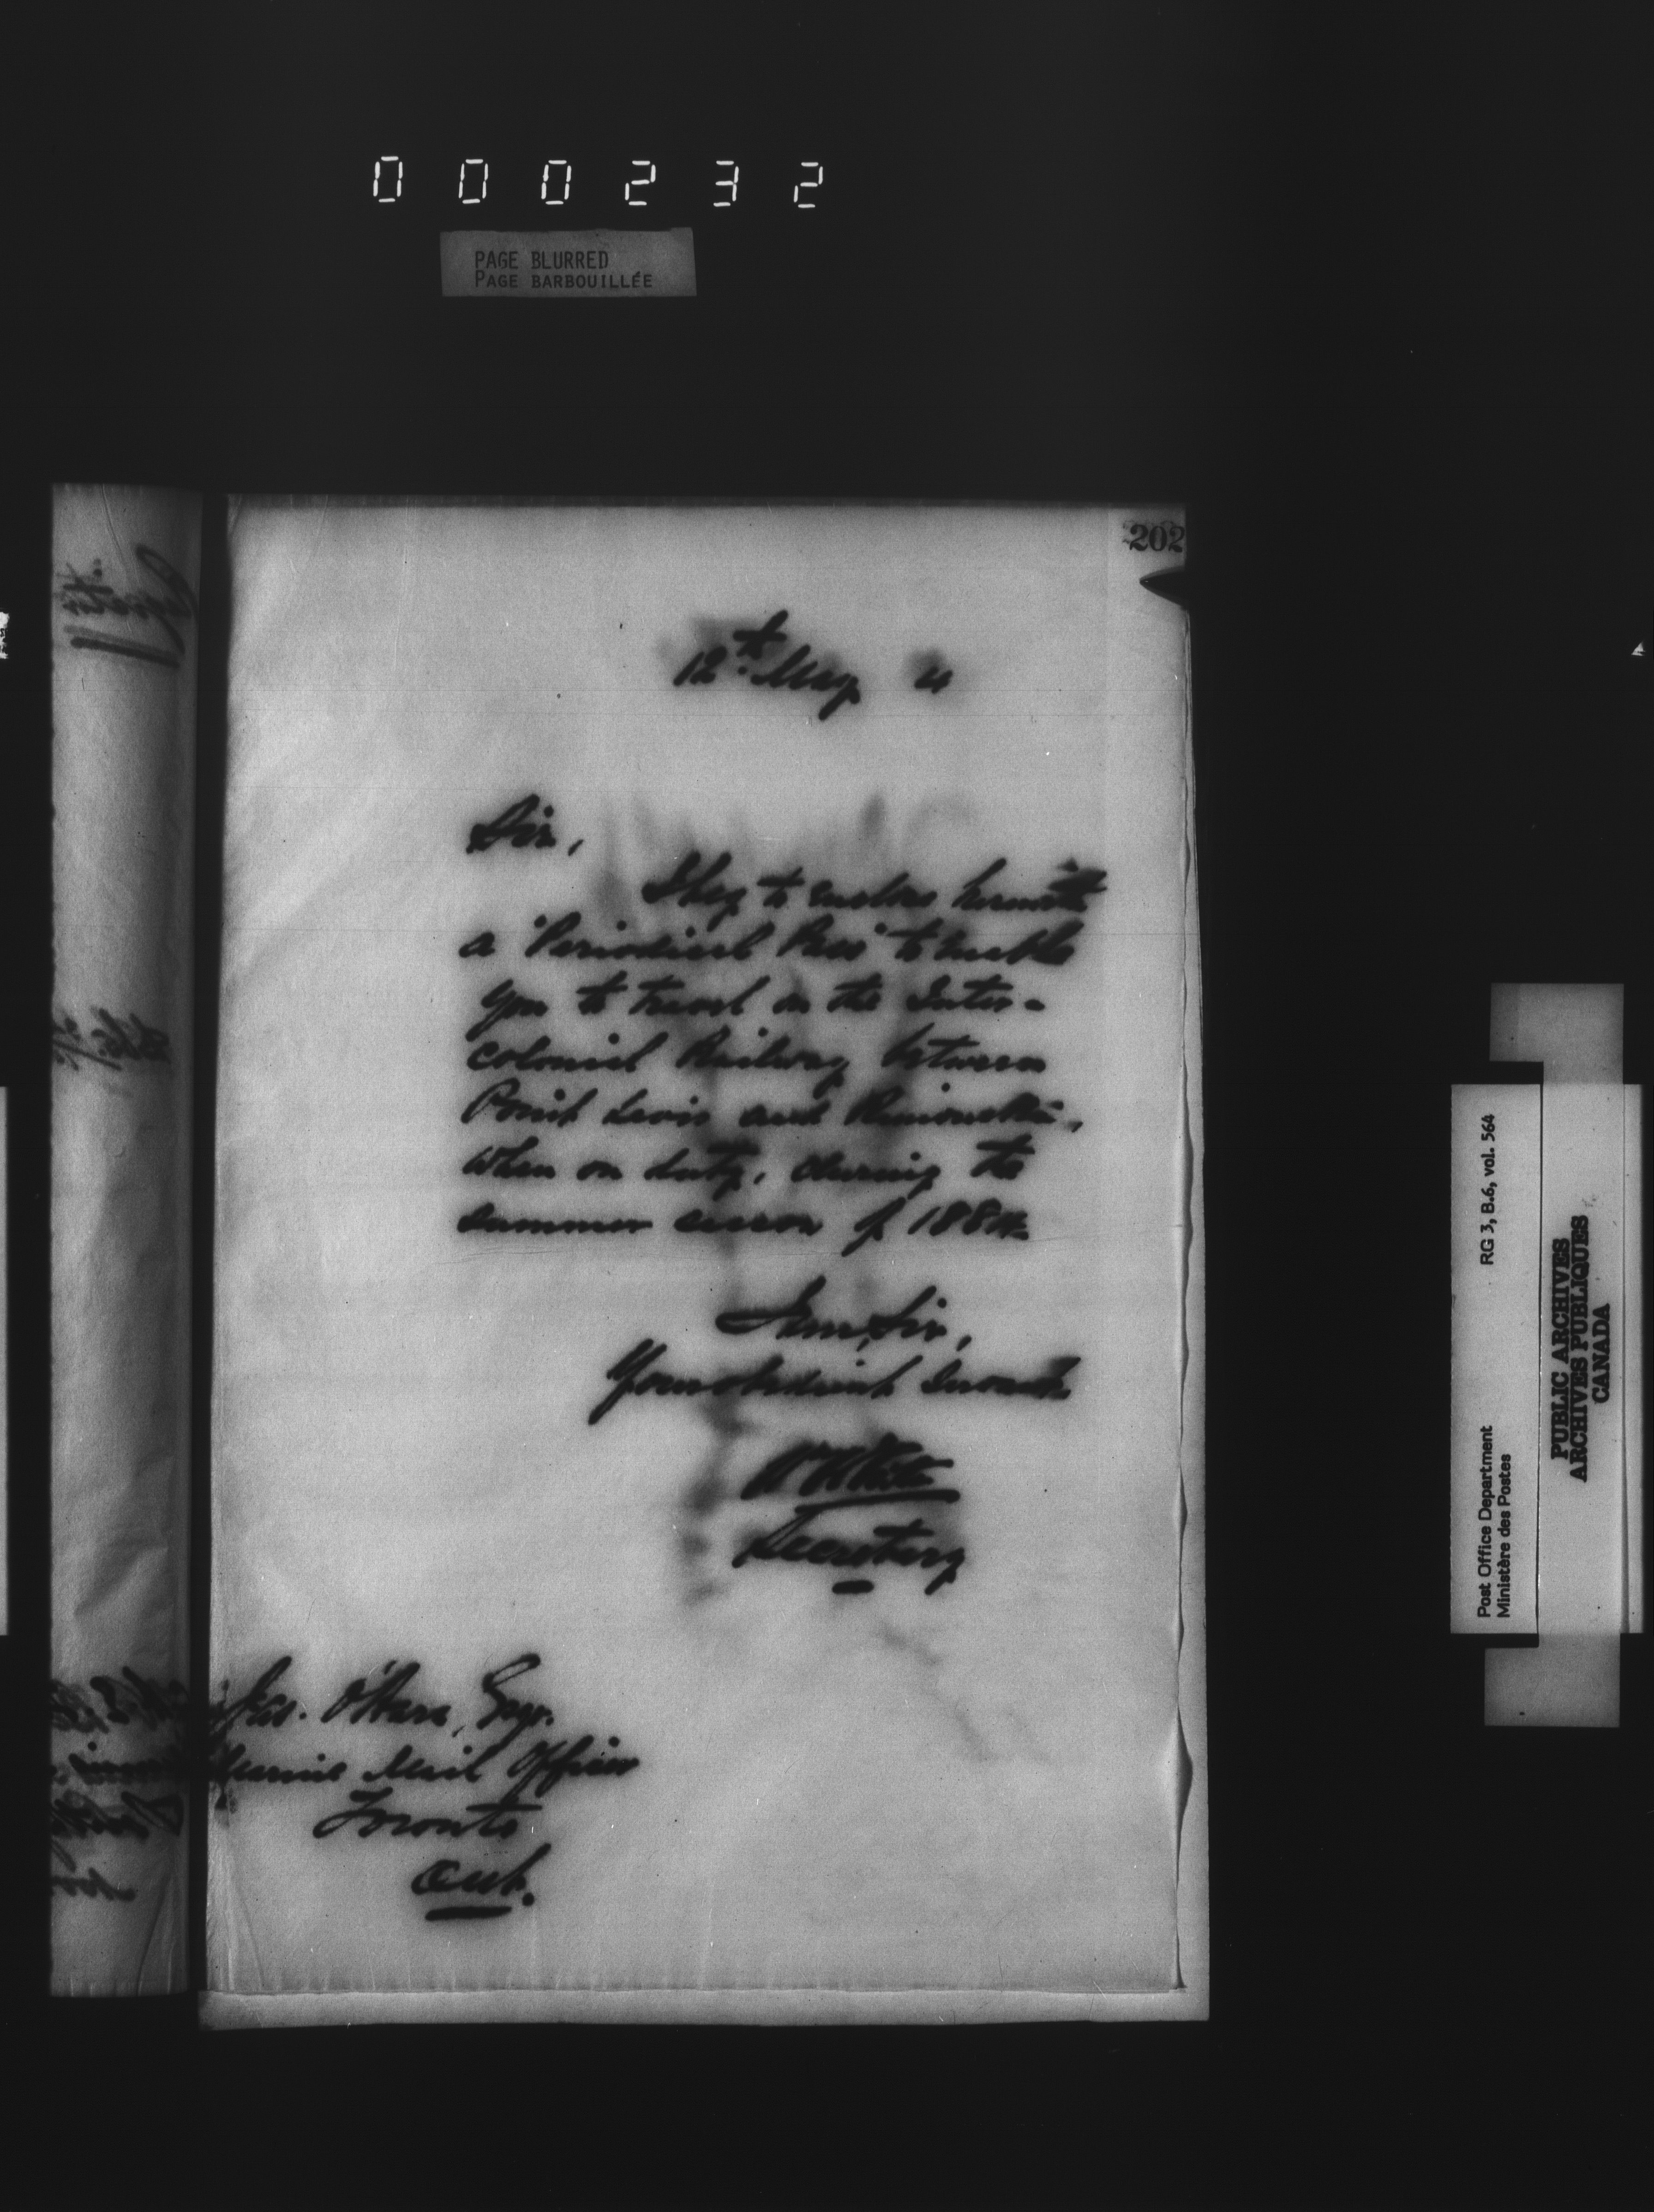 000232
PAGE BLURRED
PAGE BARBOUILLÉE
202
12th May 4
Sir,
I beg to enclose herewith
a "Periodical Pass" to enable
you to travel on the Inter-
colonial Railway between
Point Levis and Rimouski,
when on duty, during the
summer season of 1884.
I am, Sir,
Your obedient Servant
W White
Secretary
Jas. O'Hara, Esqr.
Marine Mail Officer
Toronto
Ont.
Post Office Department RG 3, B.6, vol. 564
Ministère des Postes
PUBLIC ARCHIVES
ARCHIVES PUBLIQUES
CANADA